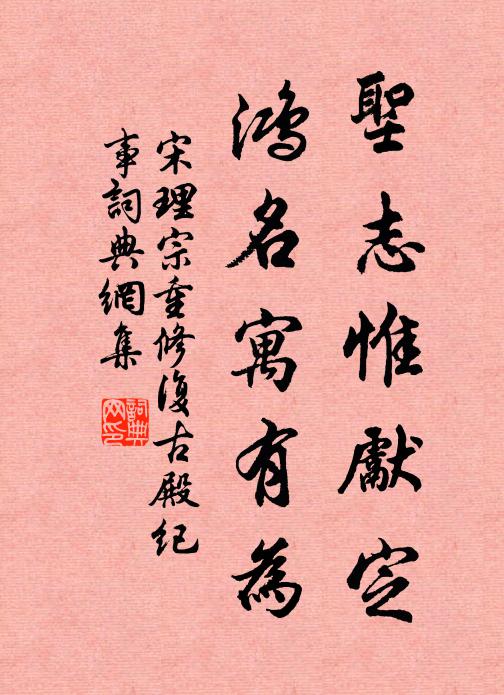 聖志惟獻定
鴻名寓有為
宋理宗重修復古殿紀
事詞典網集
詞典
网印